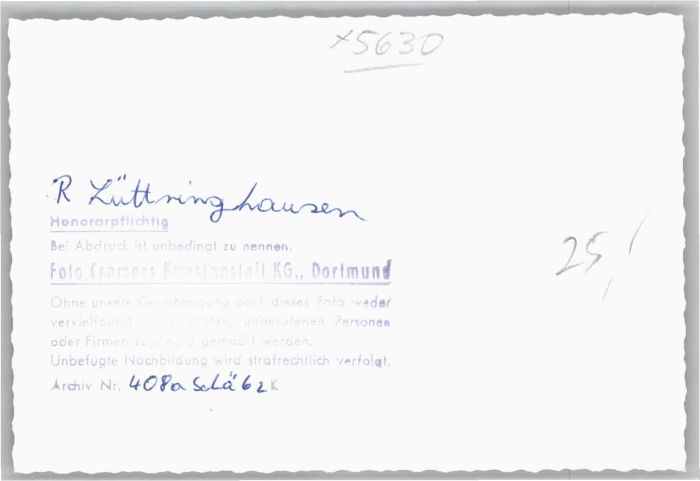 x5630
R Lüttringhausen
Honorarpflichtig
Bei Abdruck ist unbedingt zu nennen.
Foto Cramers Kunstanstalt KG., Dortmund
Ohne unsere Genehmigung darf dieses Foto weder
vervielfältigt noch dritten, unberufenen Personen
oder Firmen zugängig gemacht werden.
Unbefugte Nachbildung wird strafrechtlich verfolgt.
Archiv Nr. 408a K
25,